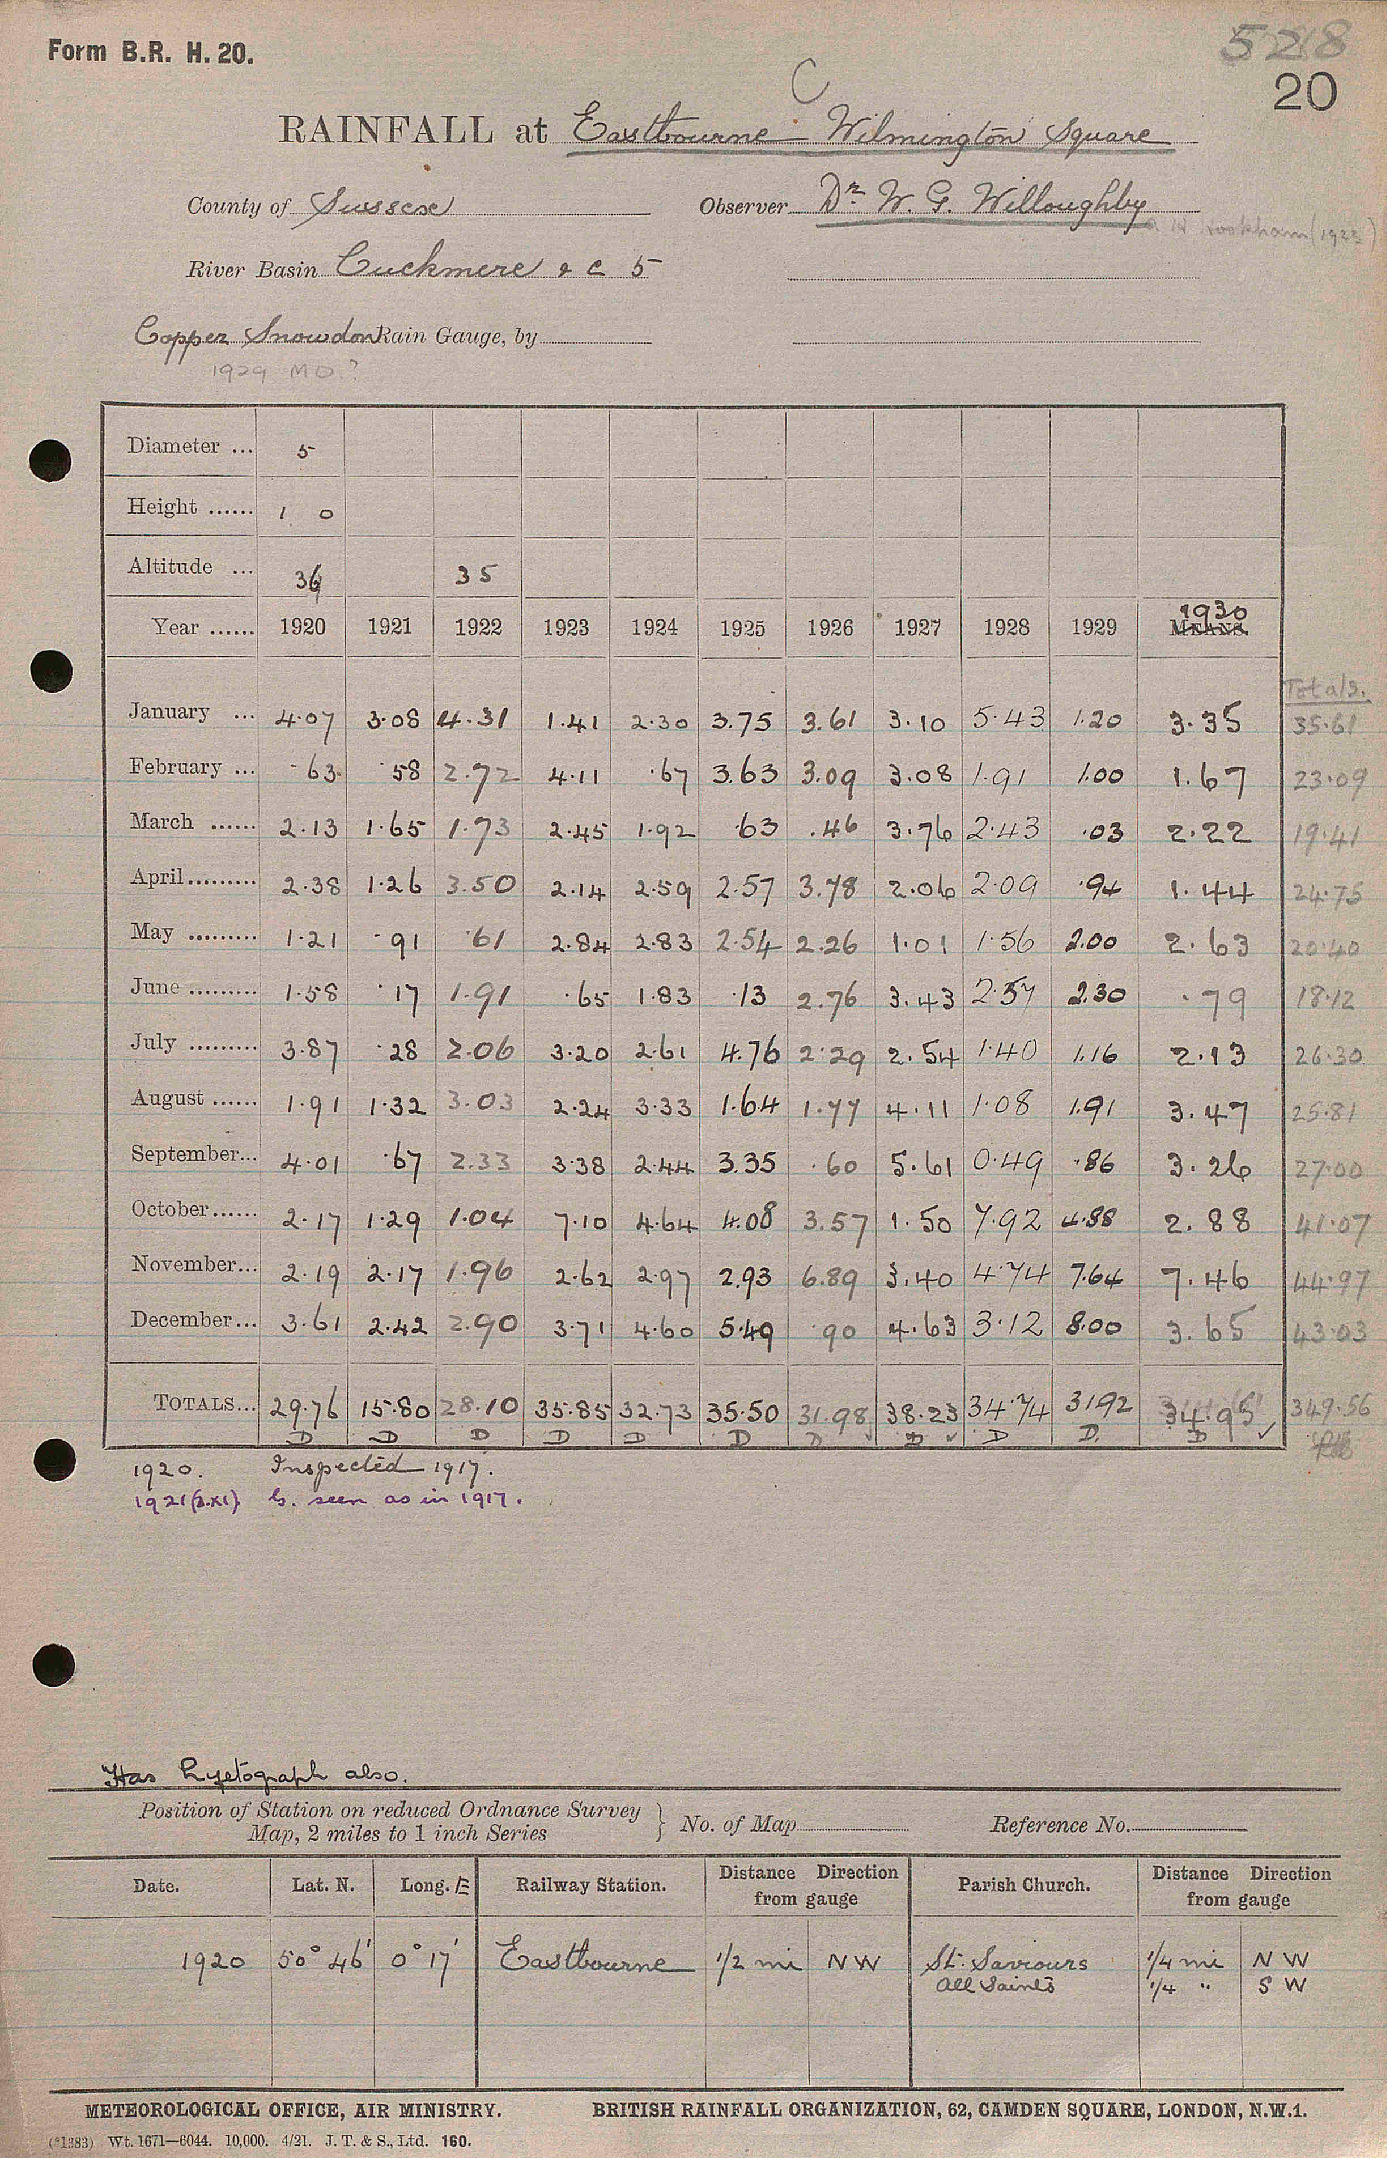 Form B.R. H. 20.
528
20
C
RAINFALL at Eastbourne Wilmington Square
County of Sussex Observer Dr. W. G. Willoughby
(1923)
River Basin Cuckmere & c 5
Copper Snowdon Rain Gauge, by
1929 MO?
Diameter ... 5
Height ...... 1 0
Altitude ... 36 35
Year ...... 1920 1921 1922 1923 1924 1925 1926 1927 1928 1929 MEANS 1930
Totals.
January ... 4.07 3.08 4.31 1.41 2.30 3.75 3.61 3.10 5.43 1.20 3.35 35.61
February ... .63 .58 2.72 4.11 .67 3.63 3.09 3.08 1.91 1.00 1.67 23.09
March ...... 2.13 1.65 1.73 2.45 1.92 .63 .46 3.76 2.43 .03 2.22 19.41
April......... 2.38 1.26 3.50 2.14 2.59 2.57 3.78 2.06 2.09 .94 1.44 24.75
May ......... 1.21 .91 .61 2.84 2.83 2.54 2.26 1.01 1.56 2.00 2.63 20.40
June ......... 1.58 .17 1.91 .65 1.83 .13 2.76 3.43 2.57 2.30 .79 18.12
July ......... 3.87 .28 2.06 3.20 2.61 4.76 2.29 2.54 1.40 1.16 2.13 26.30
August ...... 1.91 1.32 3.03 2.24 3.33 1.64 1.77 4.11 1.08 1.91 3.47 25.81
September... 4.01 .67 2.33 3.38 2.44 3.35 .60 5.61 0.49 .86 3.26 27.00
October...... 2.17 1.29 1.04 7.10 4.64 4.08 3.57 1.50 7.92 4.88 2.88 41.07
November... 2.19 2.17 1.96 2.62 2.97 2.93 6.89 3.40 4.74 7.64 7.46 44.97
December... 3.61 2.42 2.90 3.71 4.60 5.49 .90 4.63 3.12 8.00 3.65 43.03
TOTALS... 29.76 15.80 28.10 35.85 32.73 35.50 31.98 38.23 34.74 31.92 34.95 349.56
D D D D D D D D D D. D
1920. Inspected 1917.
1921(2.XI) G. seen as in 1917.
Has hyetograph also.
Position of Station on reduced Ordnance Survey
Map, 2 miles to 1 inch Series } No. of Map Reference No.
Date. Lat. N. Long. E Railway Station. Distance Direction from gauge Parish Church. Distance Direction from gauge
1920 50° 46' 0° 17' Eastbourne 1/2 mi NW St. Saviours 1/4 mi N W
All Saints 1/4 " S W
METEOROLOGICAL OFFICE, AIR MINISTRY. BRITISH RAINFALL ORGANIZATION, 62, CAMDEN SQUARE, LONDON, N.W.1.
(*1383) Wt. 1671—6044. 10,000. 4/21. J. T. & S., Ltd. 160.